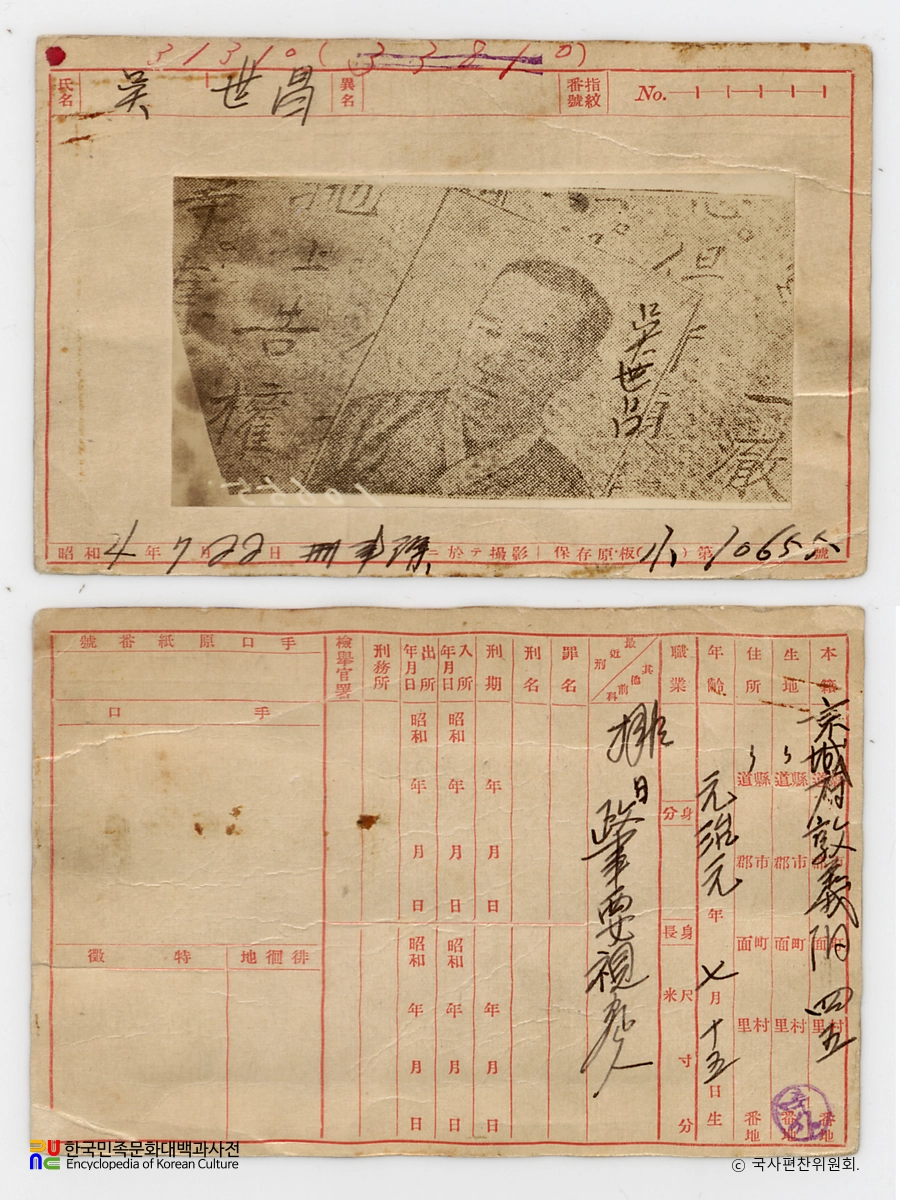 31310(33810)
氏名 吳世昌 異名 指紋番號 No.
地
上
告
權
但
吳世昌
10655
昭和 4年 7月 22日 刑事課ニ於テ撮影 保存原板(小)第10655號
本籍 京城府敦義洞 四五
道縣 郡市 面町 里村 番地
生地 〃 道縣 郡市 面町 里村 番地
住所 〃 道縣 郡市 面町 里村 番地
年齡 元治元年 七月 十五日生
職業
身分
身長 米尺 寸 分
最近刑 其他前科
排日
政事要視察人
罪名
刑名
刑期 年 月 日 年 月 日
入所年月日 昭和 年 月 日 昭和 年 月 日
出所年月日 昭和 年 月 日 昭和 年 月 日
刑務所
檢擧官署
手口原紙番號
手口
徘徊地
特徵
한국민족문화대백과사전
Encyclopedia of Korean Culture
© 국사편찬위원회.